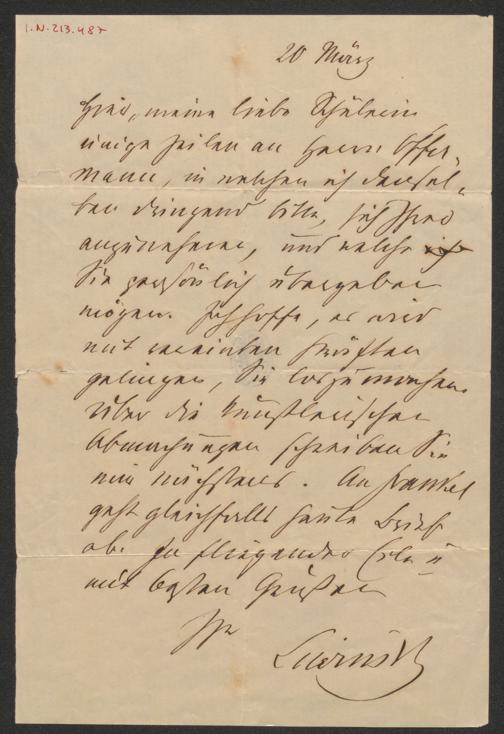 I.N. 213.487
20 März
Hier, meine liebe Schülerin
einige Zeilen an Herrn Offer-
mann, in welchen ich densel-
ben dringend bitte, sich Ihrer
anzunehmen, und welche
Sie persönlich übergeben
mögen. Ich hoffe, es wird
mit vereinten Kräften
gelingen, Sie loszumachen.
Über die künstlerischen
Abmachungen schreiben Sie
mir nächstens. An Frankel
geht gleichfalls heute Brief
ab. In fliegender Eile u
mit besten Grüßen
Ihr
Lewinsky